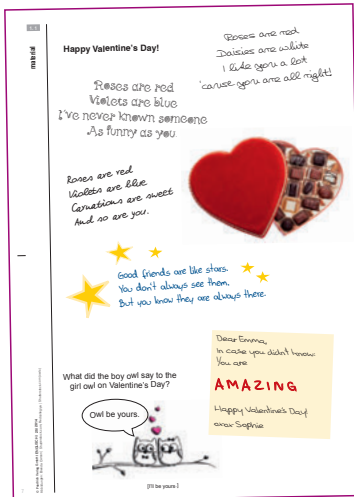 material
Happy Valentine's Day!
Roses are red
Daisies are white
I like you a lot
'cause you are all right!
Roses are red
Violets are blue
I've never known someone
As funny as you.
Roses are red
Violets are blue
Carnations are sweet
And so are you.
Good friends are like stars.
You don't always see them,
But you know they are always there.
Dear Emma,
In case you didn't know:
You are
AMAZING
Happy Valentine's Day!
xoxo Sophie
What did the boy owl say to the
girl owl on Valentine's Day?
Owl be yours.
[I'll be yours.]